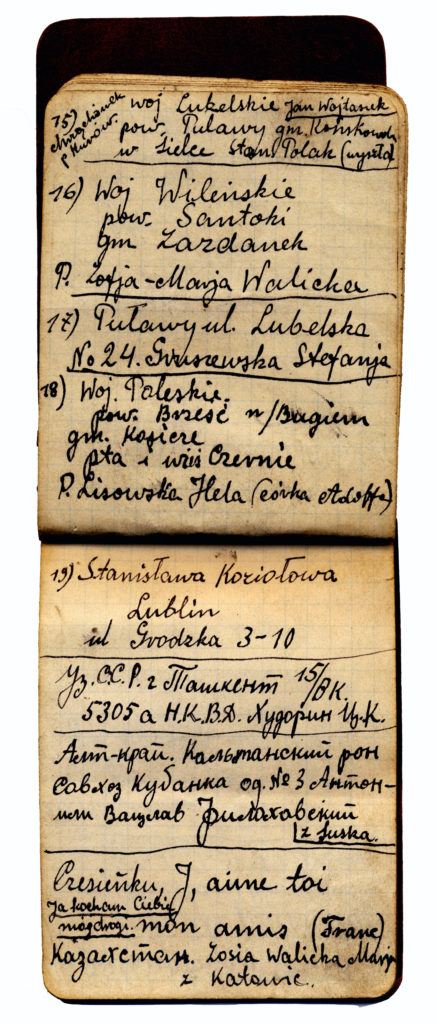 15) woj Lubelskie Jan Wojtasek
pow. Puławy gm. Końskowola
p Kurów.
w Sielce Stan. Polak
16) Woj Wileńskie
pow. Santoki
gm Zazdanek
P. Zofja-Marja Walicka
17) Puławy ul. Lubelska
No 24. Gruszewska Stefanja
18) Woj. Poleskie.
pow. Brześć n/Bugiem
gm. Kosicze
pta i wieś Czernie
P. Lisowska Hela (córka Adolfa)
19) Stanisława Koziołowa
Lublin
ul Grodzka 3-10
Уз. С.С.Р. г Ташкент 15/
5305 а Н.К.В.Д. Худорин Ц.К.
Алт-край. Кальманский рон
Савхоз Кубанка од. № 3 Антон-
Вацлав
z Łuska.
Czesieńku, J, aime toi
Ja kocham Ciebie
mój drogi. mon amis (Franc)
Казахстан. Zosia Walicka Marja
z Katowic.